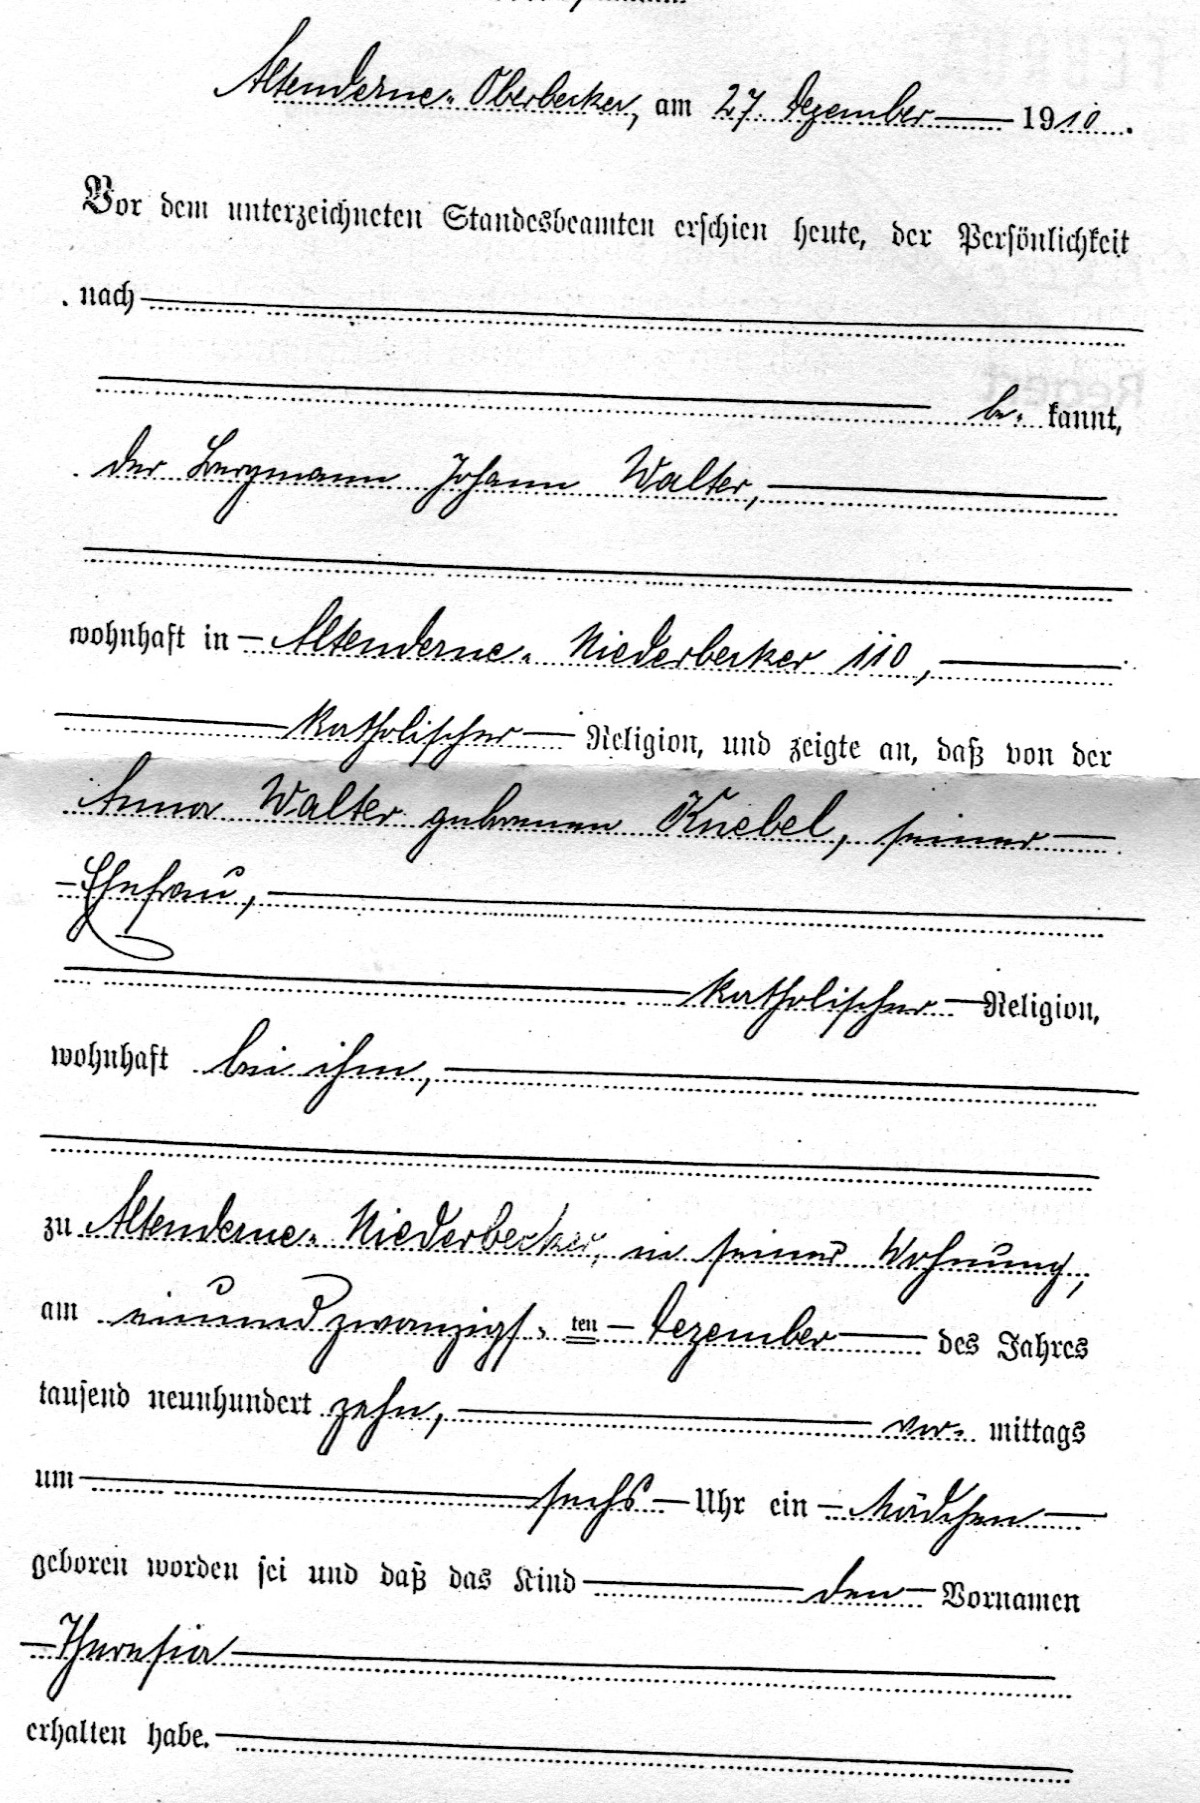 Altenderne-Oberbecker, am 27. Dezember 1910.
Vor dem unterzeichneten Standesbeamten erschien heute, der Persönlichkeit
nach
be- kannt,
der Bergmann Johann Walter,
wohnhaft in Altenderne-Niederbecker 110,
katholischer Religion, und zeigte an, daß von der
Anna Walter geborenen Knebel, seiner
Ehefrau,
katholischer Religion,
wohnhaft bei ihm,
zu Altenderne-Niederbecker, in seiner Wohnung,
am einundzwanzigs- ten Dezember des Jahres
tausend neunhundert zehn, vor- mittags
um sechs Uhr ein Mädchen
geboren worden sei und daß das Kind den Vornamen
Theresia
erhalten habe.